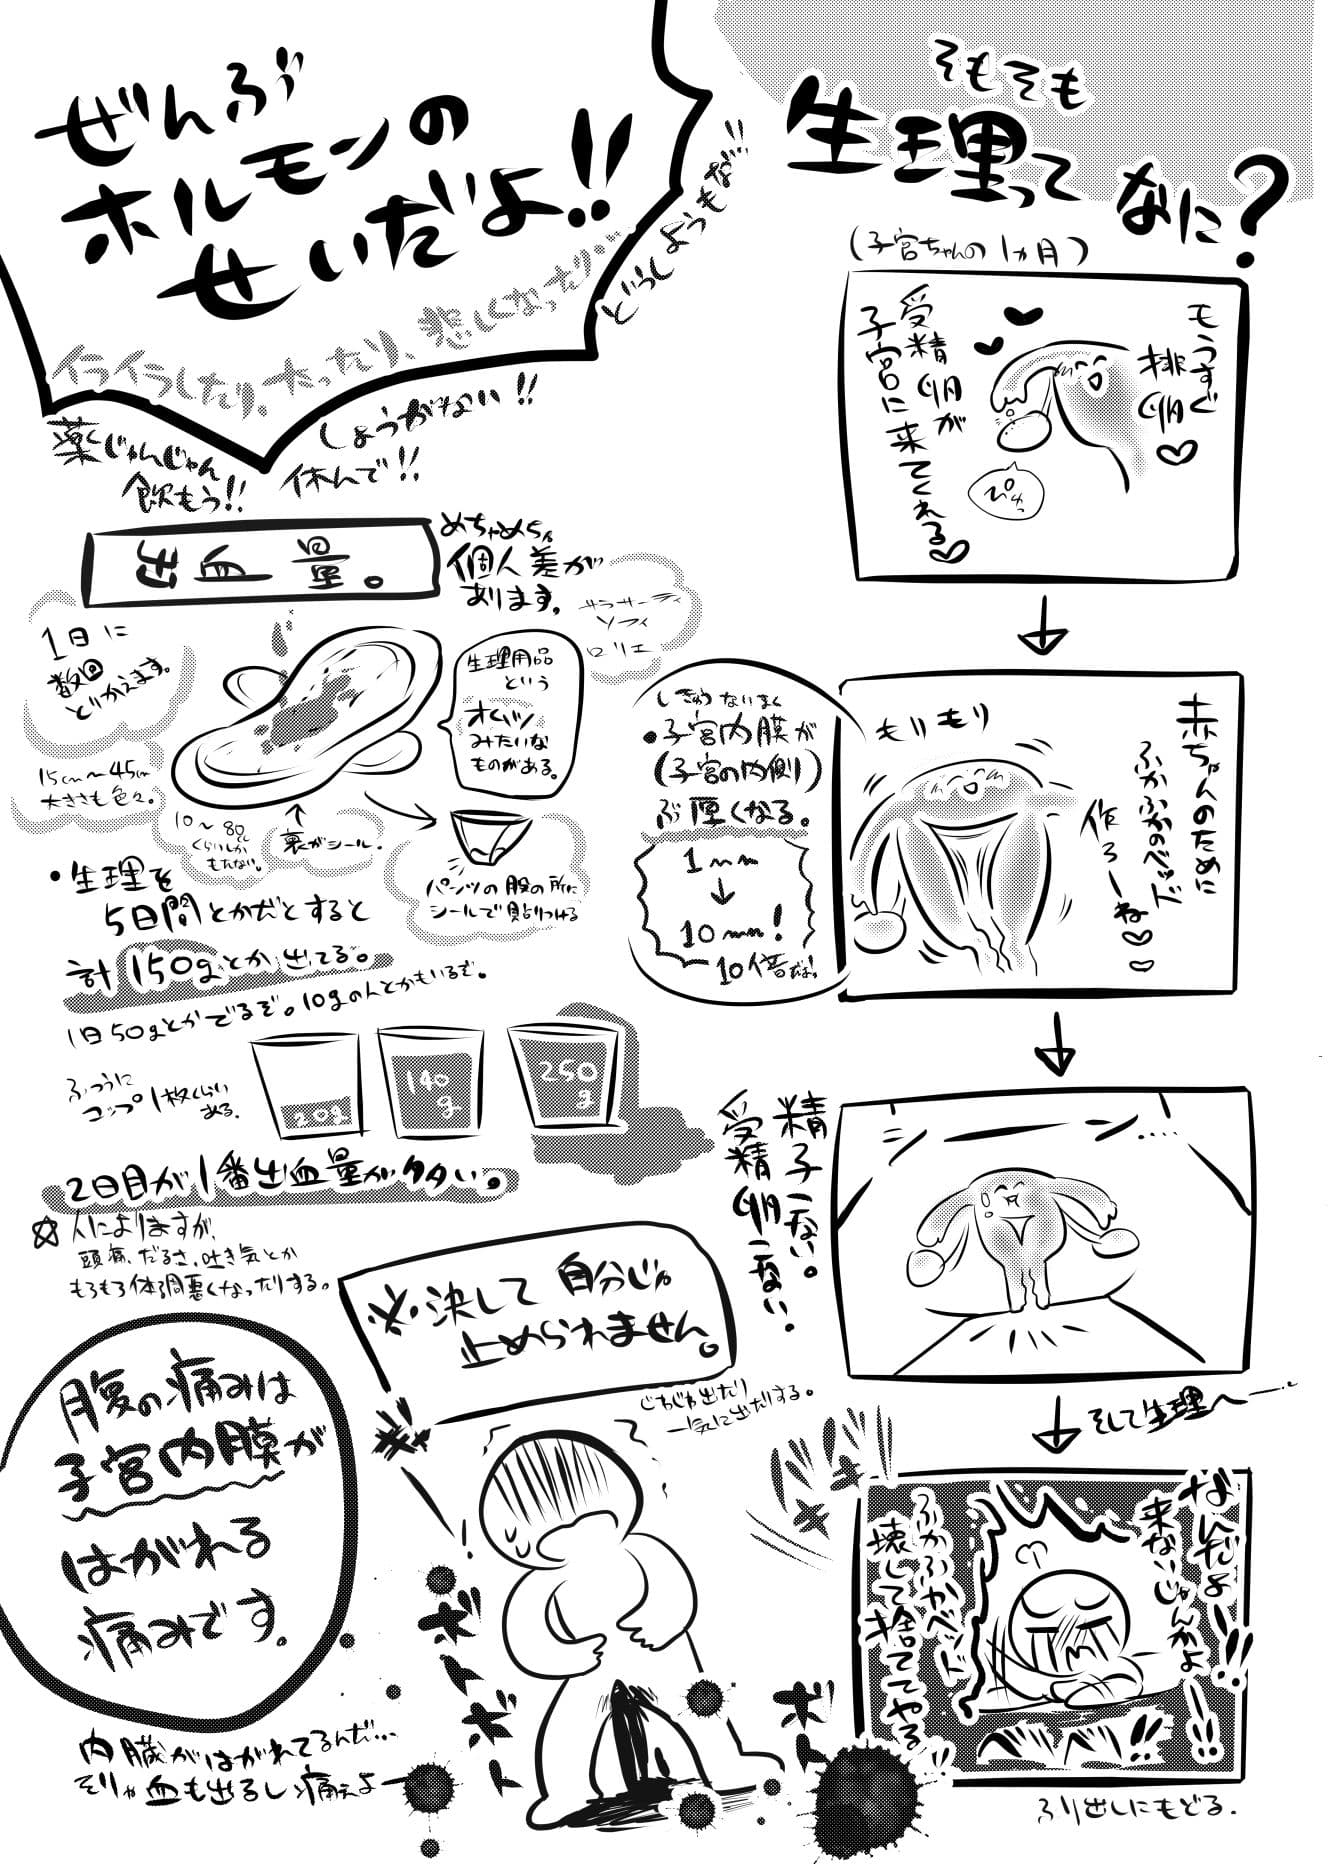 そもそも
生理って
なに?
(子宮ちゃんの1ヵ月)
もうすぐ
排卵♡
受精卵が
子宮に来てくれる♡
ぴゅっ
赤ちゃんのために
ふかふかのベッド
作ろーね♡♡
もりもり
しきゅうないまく
・子宮内膜が
(子宮の内側)
ぶ厚くなる。
1mm
↓
10mm!
10倍だよ!
シーーン‥‥
精子こない。
受精卵こない。
そして生理へ
バキ
バキ
なんだよ!!
来ないじゃんかよ!!
ふかふかベッド
壊して捨ててやる
ベリベリ!!
ふり出しにもどる.
ぜんぶ
ホルモンの
せいだよ!!
イライラしたり、太ったり、悲しくなったり…
どうしようもな!!
しょうがない!!
休んで!!
薬じゃんじゃん
飲もう!!
出血量。
めちゃめちゃ
個人差が
あります。
サラサーティ
ソフィ
ロリエ
1日に
数回
とりかえます。
生理用品
という
オムツ
みたいな
ものがある。
15cm〜45cm
大きさも色々。
10〜80g
くらいしか
もたない。
裏がシール.
パンツの股の所に
シールで貼りつける
・生理を
5日間とかだとすると
計150gとか出てる。
1日50gとかでるぞ。10gの人とかもいるぞ。
ふつうに
コップ1杯くらい
ある.
20g
140g
250g
2日目が1番出血量が多い。
☆人によりますが、
頭痛、だるさ、吐き気とか
もろもろ体調悪くなったりする。
※決して自分じゃ
止められません。
じわじわ出たり
一気に出たりする。
腹の痛みは
子宮内膜が
はがれる
痛みです。
ボト
ボト
ボト
内臓がはがれてるんだ…
そりゃ血も出るし痛ぇよ